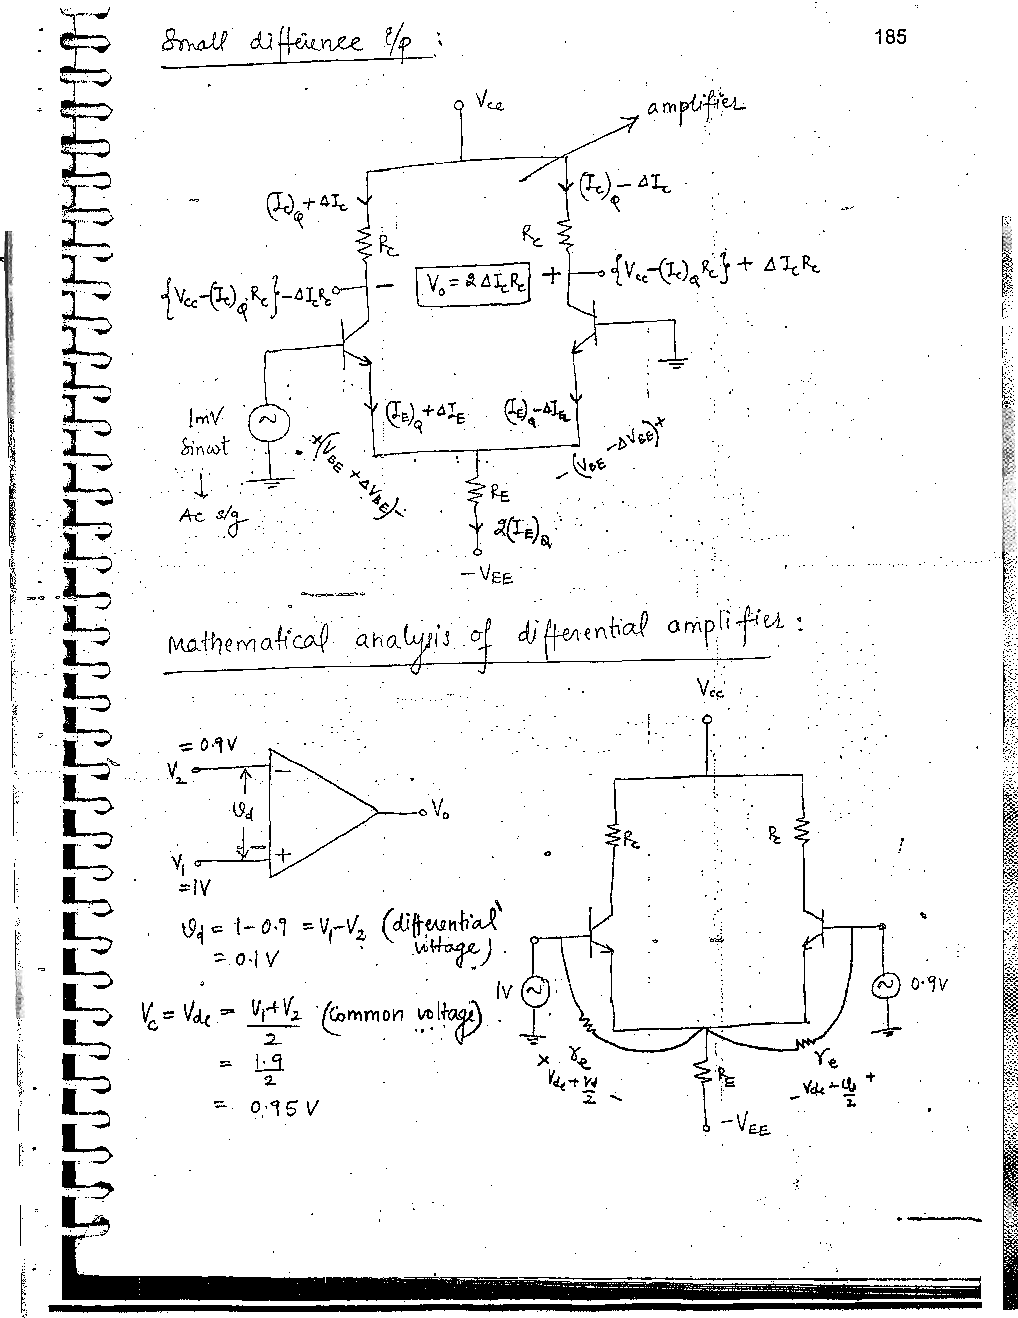 Small difference i/p :
185
Vcc
amplifier
(Ic)Q + ΔIc
(Ic)Q − ΔIc
Rc
Rc
{Vcc−(Ic)Q Rc}−ΔIcRc
− V₀ = 2ΔIcRc +
{Vcc−(Ic)Q Rc} + ΔIcRc
(IE)Q + ΔIE
(IE)Q − ΔIE
1mV
Sinωt
↓
Ac s/g
+ (VBE + ΔVBE) −
− (VBE − ΔVBE) +
RE
2(IE)Q
−VEE
Mathematical analysis of differential amplifier :
Vcc
= 0.9V
V₂
−
vd
V₀
V₁
+
= 1V
Rc
Rc
vd = 1−0.9 = V₁−V₂ (differential
voltage)
= 0.1V
1V
0.9V
Vc = Vdc = V₁+V₂ / 2 (common voltage)
= 1.9 / 2
= 0.95 V
re
re
+ Vdc + vd/2 −
RE
− Vdc − vd/2 +
−VEE